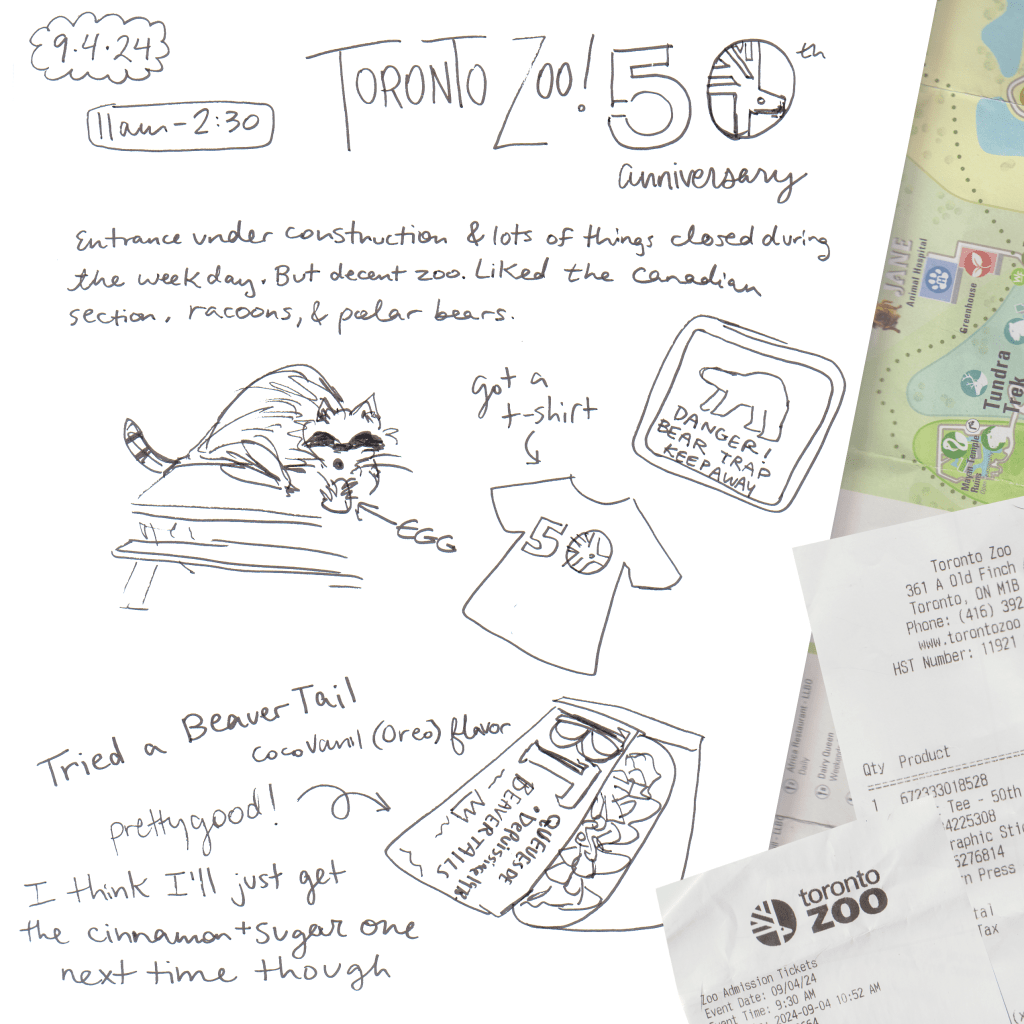 9.4.24
11am-2:30
TORONTO ZOO! 50th
anniversary
Entrance under construction & lots of things closed during
the weekday. But decent zoo. Liked the Canadian
section, racoons, & polar bears.
got a
t-shirt
DANGER!
BEAR TRAP
KEEP AWAY
EGG
50
Tried a BeaverTail
cocovanil (Oreo) flavor
pretty good!
I think I'll just get
the cinnamon + sugar one
next time though
BT
BEAVERTAILS
QUEUES DE
JANE
Animal Hospital
Greenhouse
Tundra
Trek
Mayan Temple
Ruins
Africa Restaurant - LLBO
Daily
Dairy Queen
Toronto Zoo
361 A Old Finch
Toronto, ON M1B
Phone: (416) 392
www.torontozoo
HST Number: 11921
Qty Product
1 672333018528
Tee - 50th
4225308
raphic Stic
5276814
n Press
tal
Tax
toronto
ZOO
Zoo Admission Tickets
Event Date: 09/04/24
Event Time: 9:30 AM
2024-09-04 10:52 AM